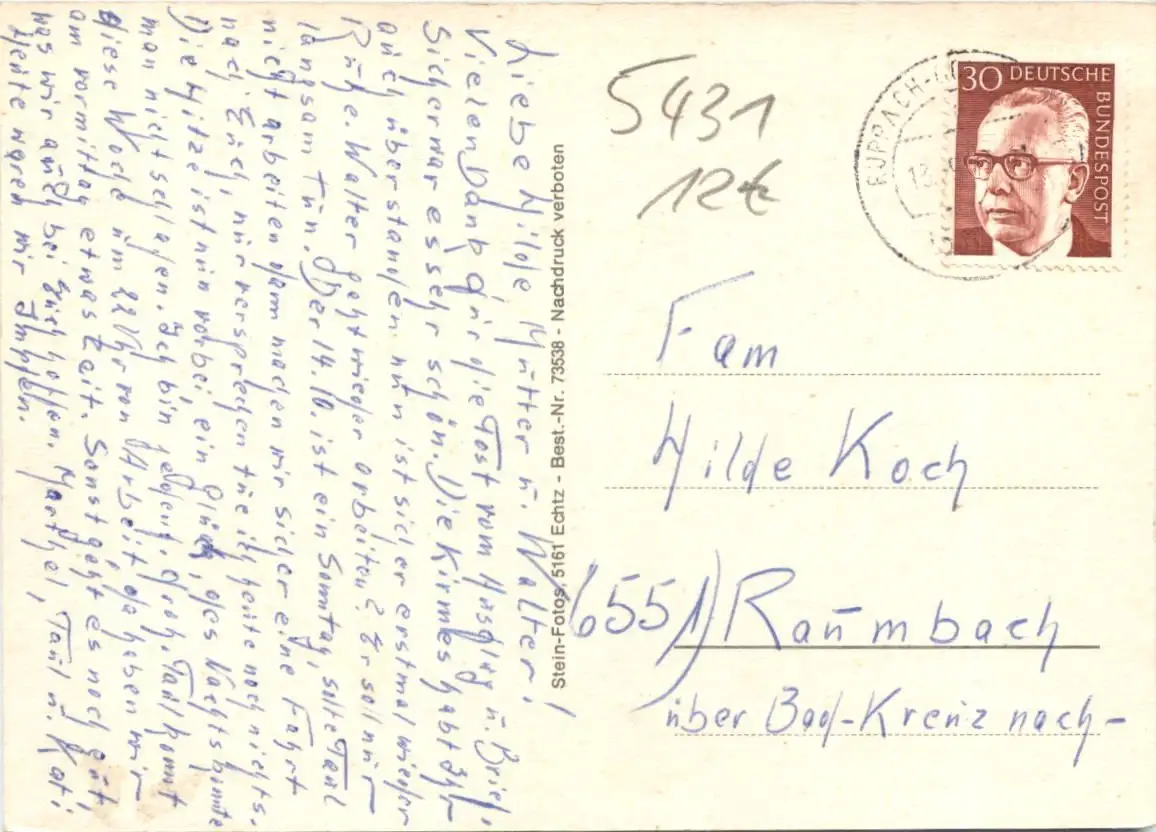 Liebe Hilde, Mutter u. Walter!
Vielen Dank für die Post vom Ausflug u. Brief,
Sicher war es sehr schön. Die Kirmes habt Ihr
auch überstanden nun ist sicher erstmal wieder
Ruhe. Walter geht wieder arbeiten? Er soll nur
langsam tun. Der 14.10. ist ein Sonntag, sollte Paul
nicht arbeiten dann machen wir sicher eine Fahrt
nach Euch, nur versprechen tue ich heute noch nichts.
Die Hitze ist nun vorbei, ein Glück, des Nachts konnte
man nicht schlafen. Ich bin froh, Paul kommt
diese Woche um 22 Uhr von Arbeit da haben wir
am vormittag etwas Zeit. Sonst geht es noch gut,
was wir auch bei Euch hoffen. Marthel, Paul u. Kati
Heute waren wir Impfen.
Stein-Fotos, 5161 Echtz - Best.-Nr. 73538 - Nachdruck verboten
5431
12€
RUPPACH-
30 DEUTSCHE
BUNDESPOST
Fam
Hilde Koch
(6551) Raumbach
über Bad-Kreuznach-